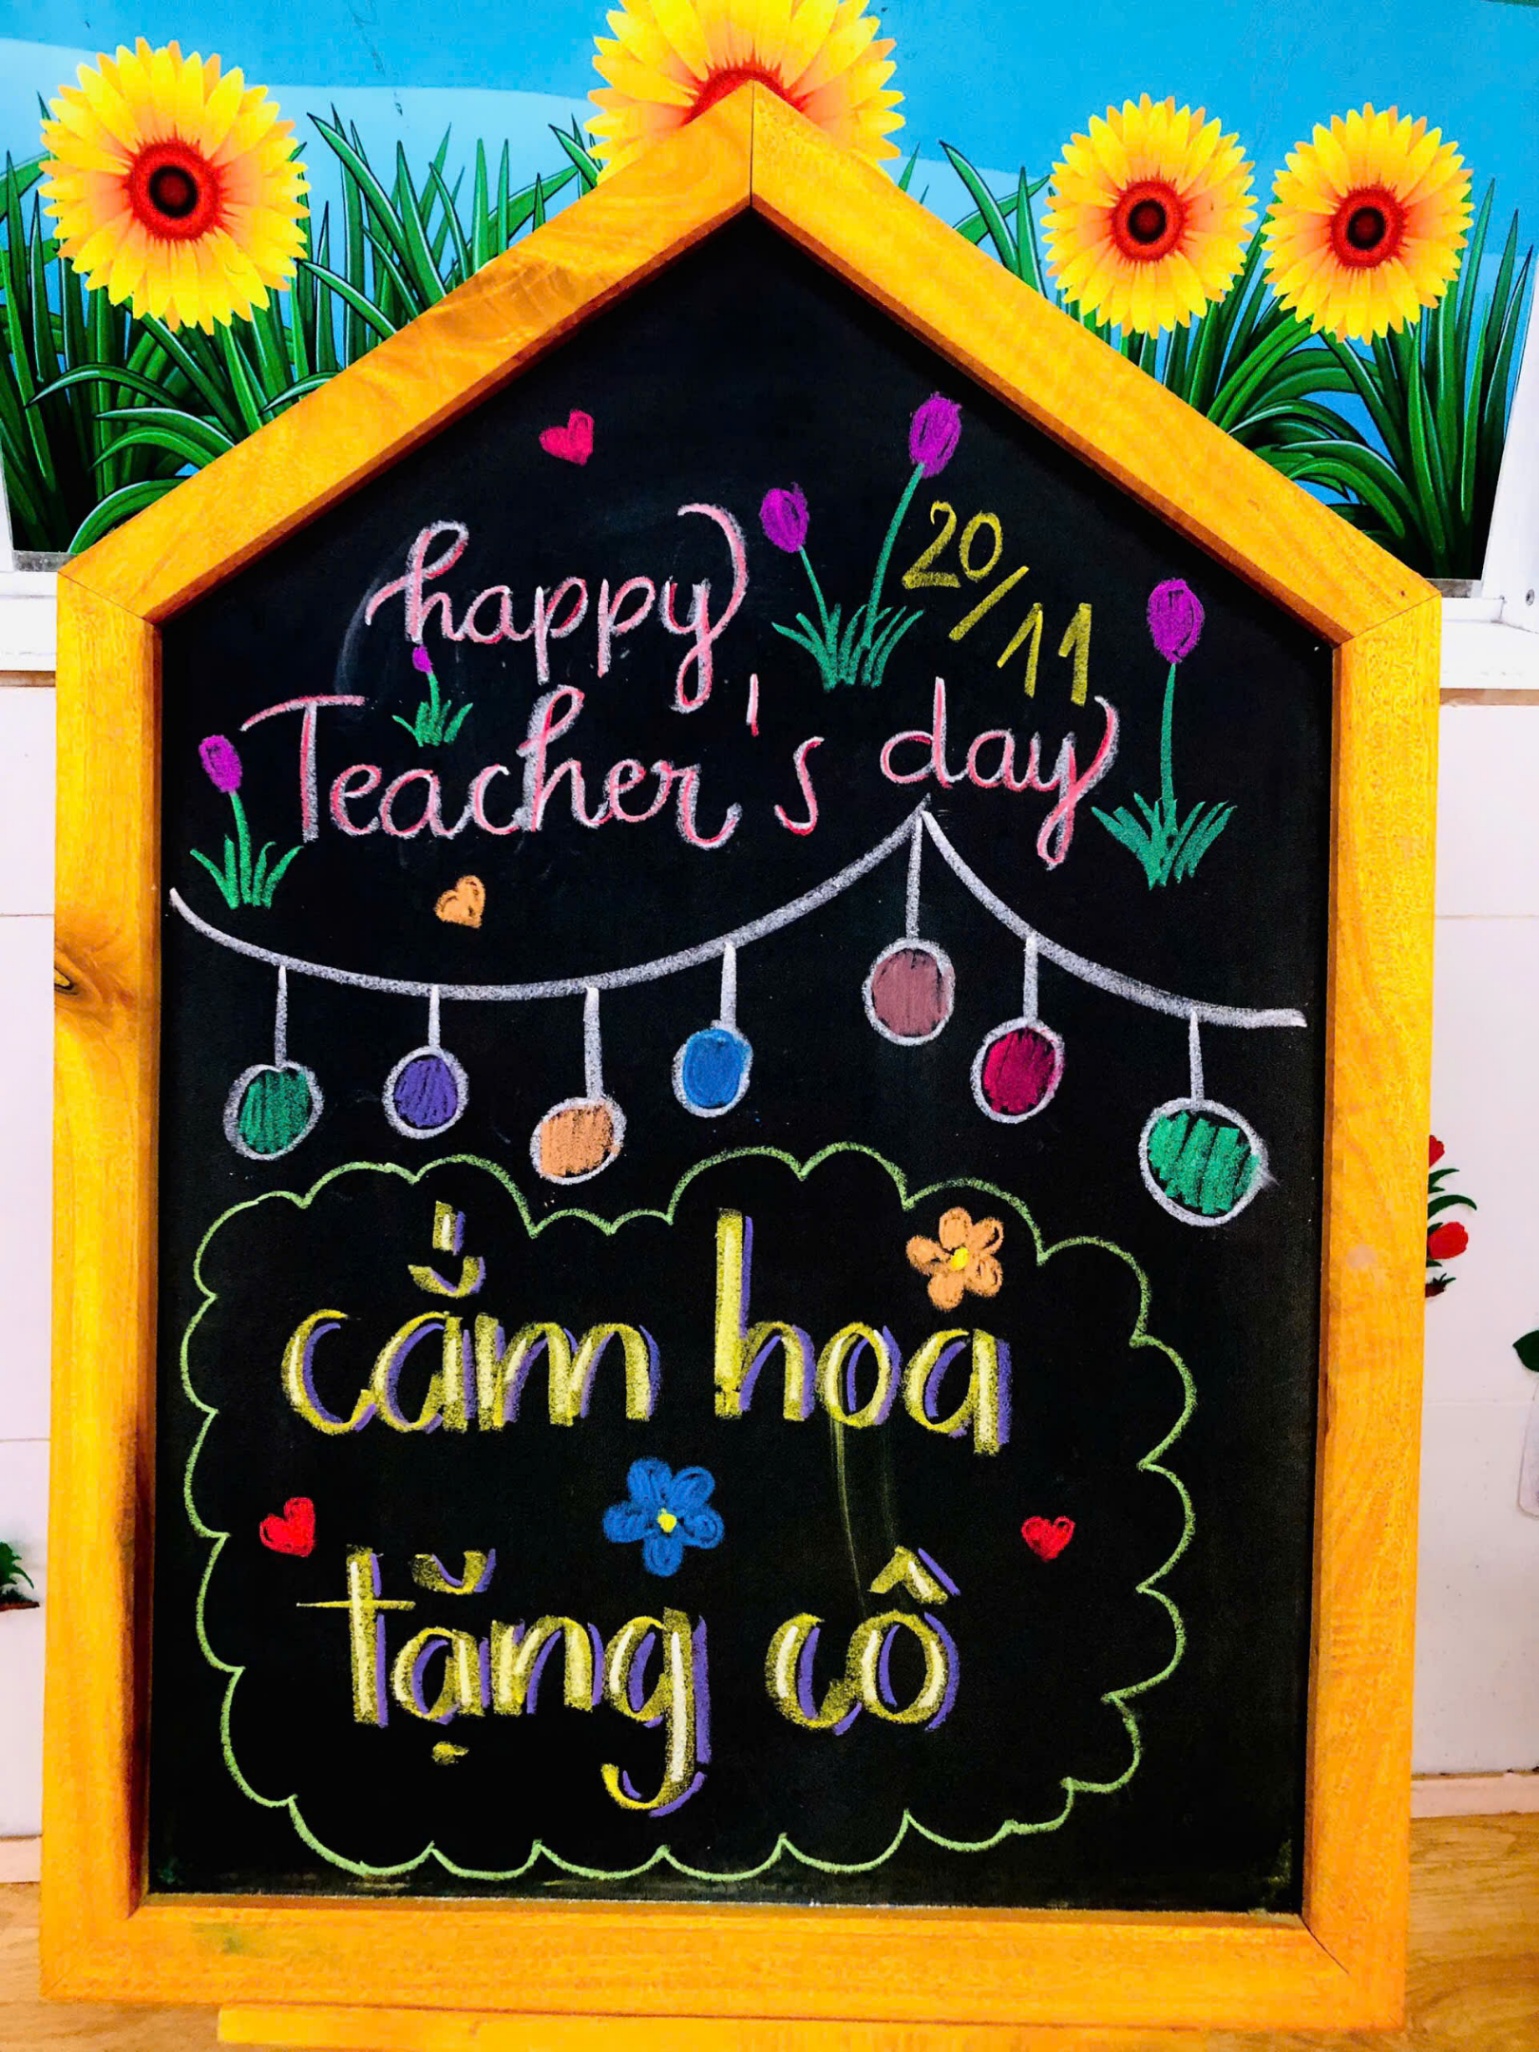 happy
20/11
Teacher's day
cắm hoa
tặng cô